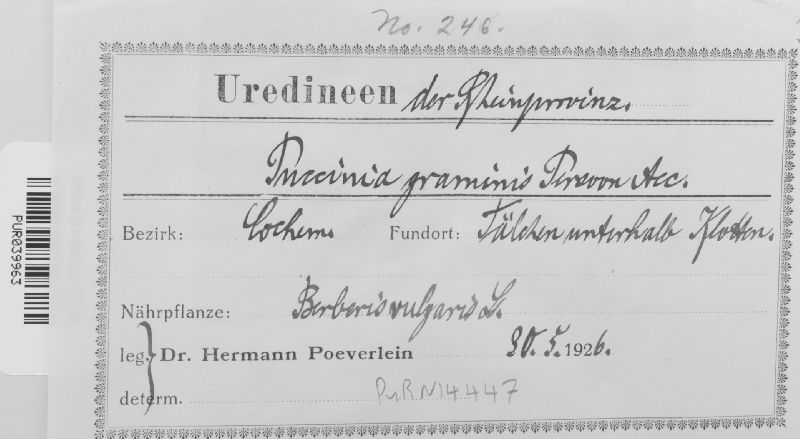 No. 246.
Uredineen der Rheinprovinz.
Puccinia graminis Persoon Aec.
Bezirk: Cochem. Fundort: Tälchen unterhalb Klotten.
Nährpflanze: Berberis vulgaris L.
leg. Dr. Hermann Poeverlein 30. 5. 1926.
determ. PuR N14447
PUR039963